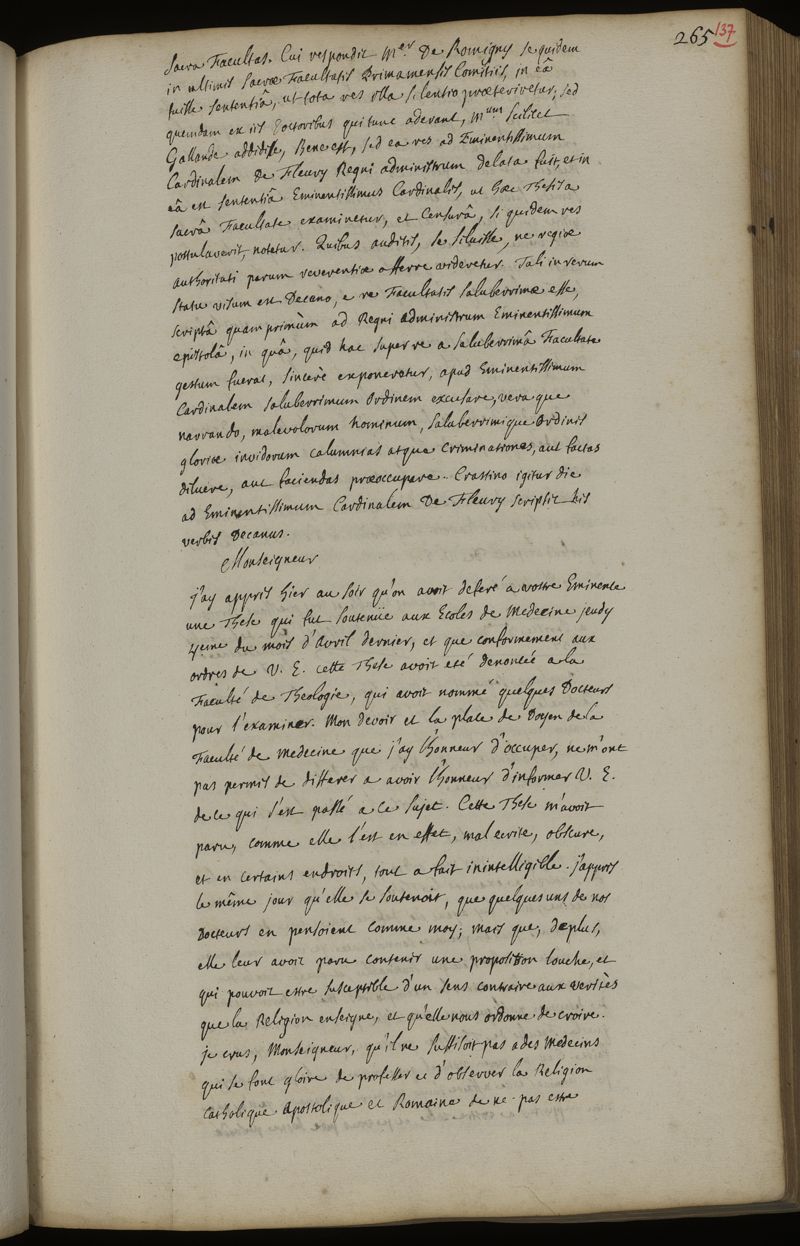 265 137
sacra Facultas. Cui respondit Mer De Romigny se quidem
in ultimis sacræ Facultatis Primamensis Comitiis, in eâ
fuisse sententiâ, ut tota res illa silentio præteriretur, sed
quemdam ex iis Doctoribus qui tunc aderant, Mum scilicet
Gallande addidisse, Bene est, sed ea res ad Eminentissimum
Cardinalem De Fleury Regni administrum delata fuit, et in
eâ est sententiâ Eminentissimus Cardinalis, ut hæc Thesis a
sacrâ Facultate examinetur, et Censurâ, si quidem res
postulaverit, notetur. Quibus auditis, se siluisse, ne regiæ
authoritati parum reverentiæ afferre videretur. Tali in rerum
statu visum est Decano, e re Facultatis saluberrimæ esse,
scriptâ quam primùm ad Regni Administrum Eminentissimum
epistolâ, in quâ, quid hac super re a saluberrimâ Facultate
gestum fuerat, sincerè exponeretur, apud Eminentissimum
Cardinalem saluberrimum Ordinem excusare, vera que
narrando, malevolorum hominum, saluberrimique Ordinis
gloriæ invidorum calumnias atque Criminationes, aut factas
diluere, aut faciendas præoccupare. Crastino igitur die
ad Eminentissimum Cardinalem De Fleury scripsit his
verbis Decanus.
Monseigneur
j'ay appris hier au soir qu'on avoit deferé a vostre Eminence
une These qui fut soutenüe aux Ecoles de Medecine jeudy
4eme du mois d'Avril dernier, et que conformement aux
ordres de V. E. cette These avoit eté denoncée a la
Faculté de Theologie, qui avoit nommé quelques Docteurs
pour l'examiner. Mon devoir et la place de Doyen de la
Faculté de Medecine que j'ay l'honneur d'occuper, ne m'ont
pas permis de differer a avoir l'honneur d'informer V. E.
de ce qui s'est passé a ce sujet. Cette These m'avoit
paru, comme elle l'est en effet, mal ecrite, obscure,
et en certains endroits, tout a fait inintelligible. j'appris
le même jour qu'elle se soutenoit, que quelques uns de nos
Docteurs en pensoient comme moy; mais que, de plus,
elle leur avoit paru contenir une proposition louche, et
qui pouvoit estre susceptible d'un sens contraire aux verités
que la Religion enseigne, et qu'elle nous ordonne de croire.
je crus, Monseigneur, qu'il ne suffisoit pas a des Medecins
qui se font gloire de professer et d'observer la Religion
Catholique Apostolique et Romaine de ne pas estre